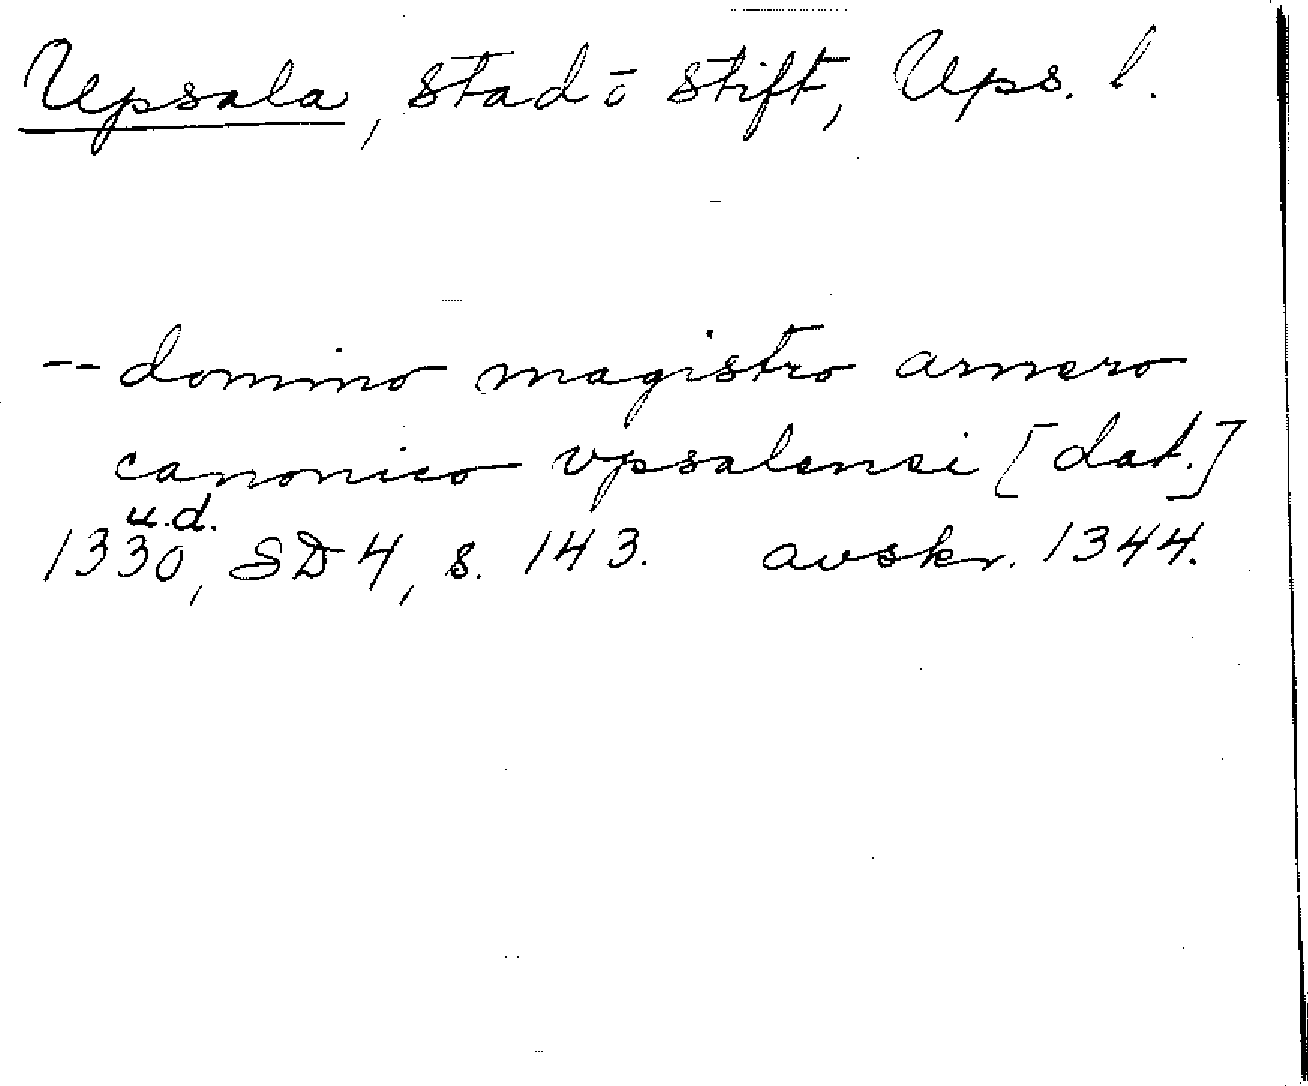 Upsala, stad ō stift, Ups. l.
-- domino magistro arnero
canonico vpsalensi [dat.]
u.d.
1330, SD 4, s. 143. avskr. 1344.